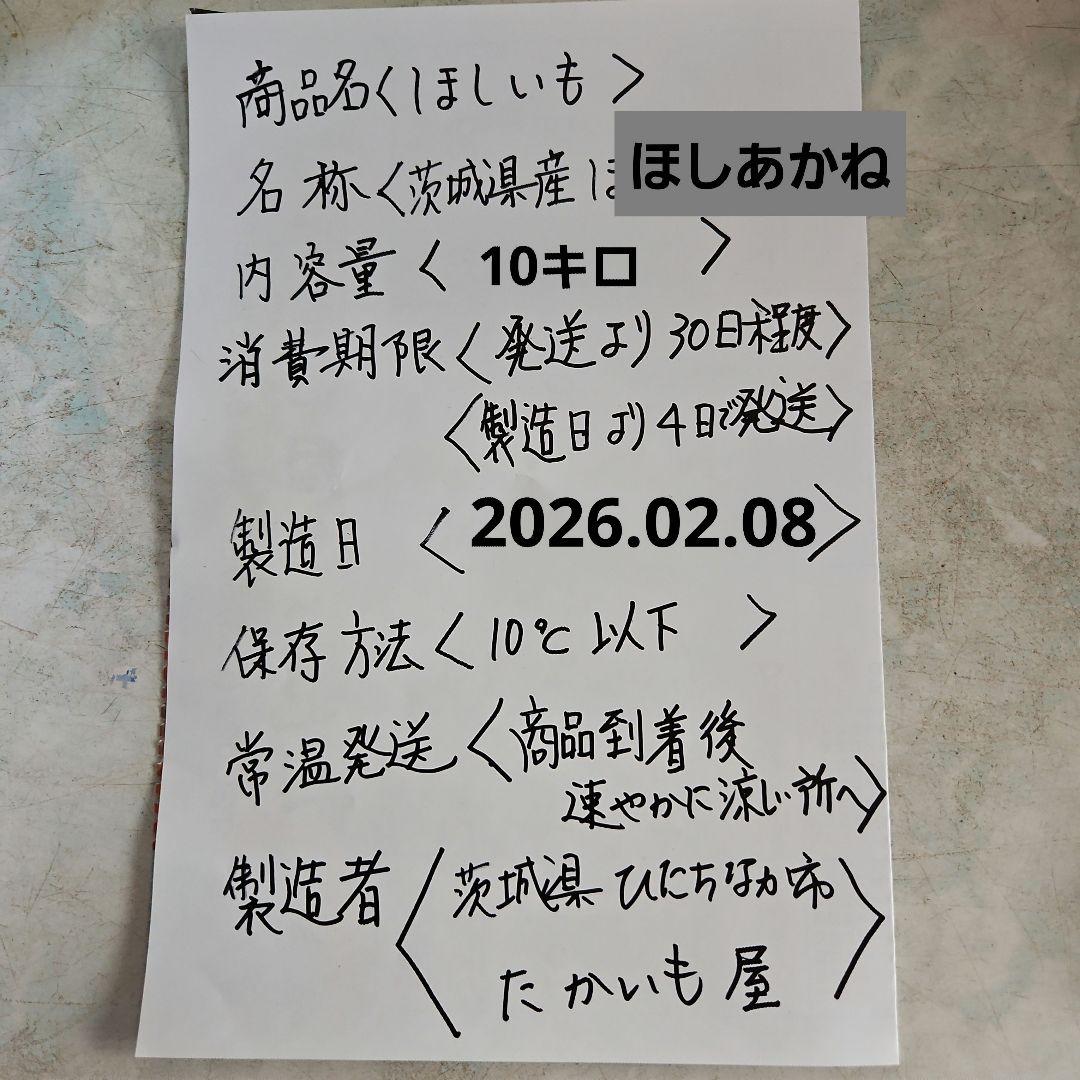 商品名〈ほしいも〉
名称〈茨城県産ほ
ほしあかね
内容量〈 10キロ 〉
消費期限〈発送より30日程度〉
〈製造日より4日で発送〉
製造日〈2026.02.08〉
保存方法〈10℃以下〉
常温発送〈商品到着後
速やかに涼しい所へ〉
製造者〈茨城県ひたちなか市
たかいも屋〉